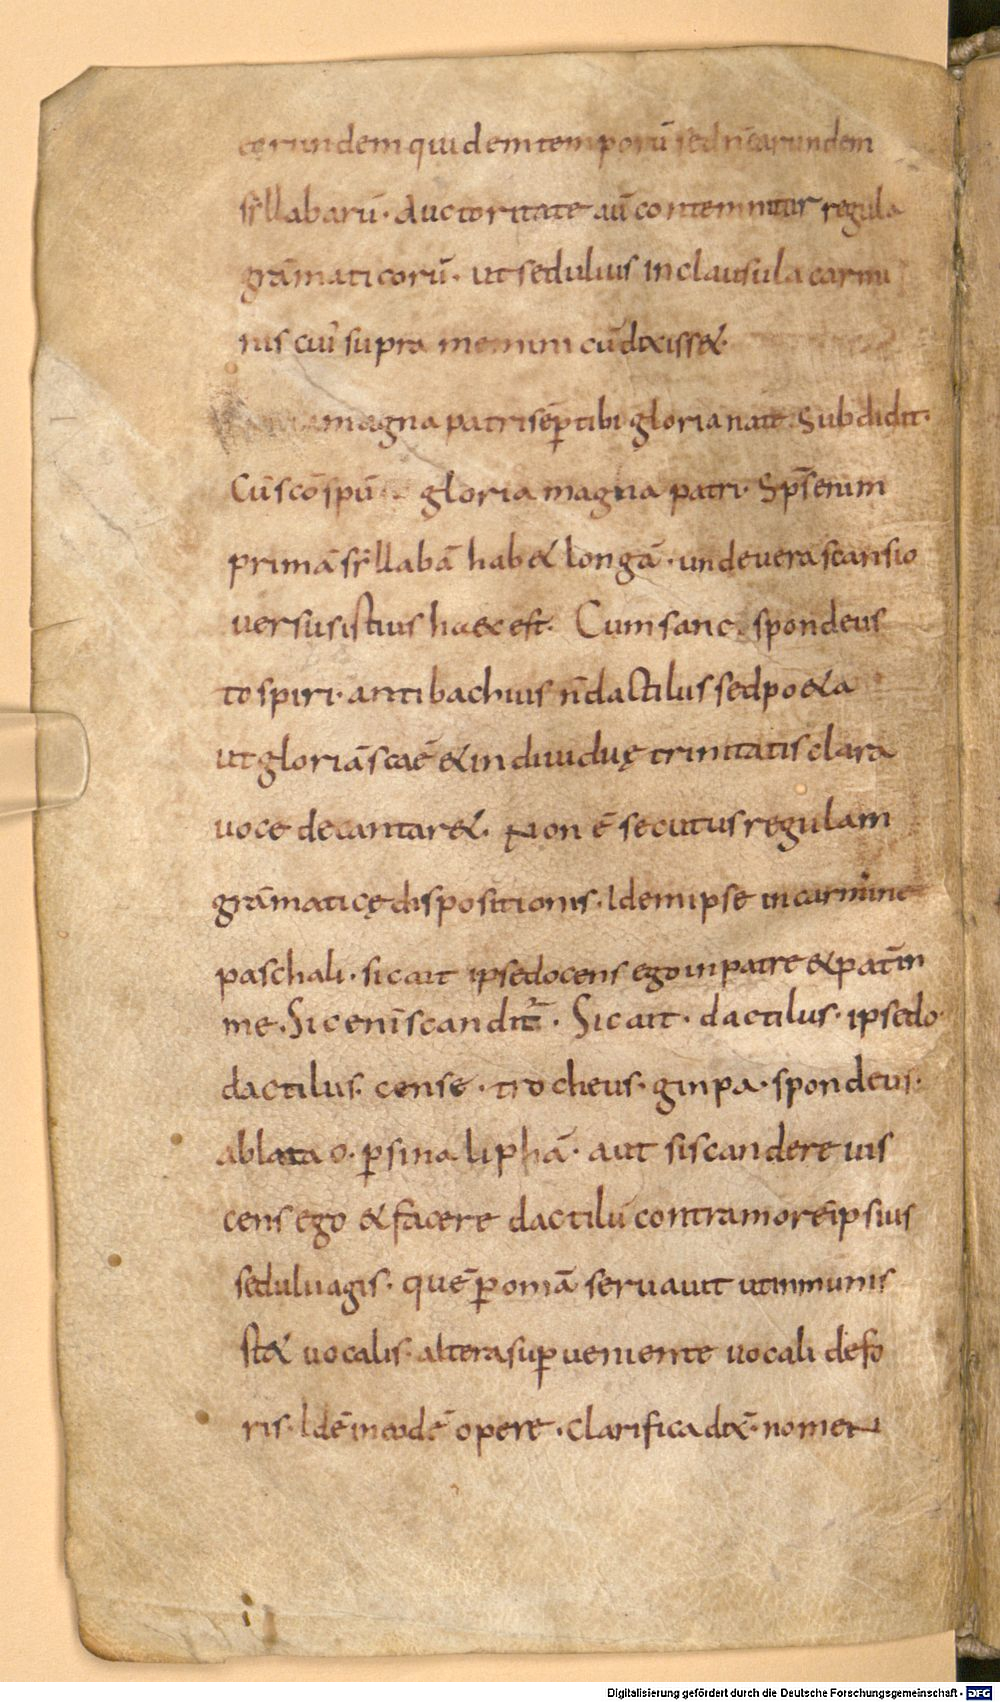 eorundem quidem temporū sed ñ earundem
sẏllabarū. Auctoritate aū contemnitur regula
grāmaticorū. ut sedulius in clausula carmi
nis cuī supra memini cū dixiss&.
magna patri sēp tibi gloria nate. Subdidit.
Cū scō spū gloria magna patri. Sp̄s enim
primā sẏllabā hab& longā. unde vera scansio
versus istius haec est. Cum sanc. spondeus
to spiri. antibachius ñ dactilus sed po&a
ut gloriā scae & individuę trinitatis clara
voce decantar&. Non ē secutus regulam
grāmaticę dispositionis. Idem ipse in carmine
paschali. sic ait ipse docens ego in patre & pat̄ in
me. Sic enī scandit̄. Sic ait. dactilus. ipse do.
dactilus. cens e. trocheus. g in pa. spondeus.
ablata o. p sinaliphā. aut si scandere vis
cens ego & facere dactilū contra morē ipsius
sedulii agis. quē p omā servavit ut inmunis
st& vocalis. altera sup veniente vocali defo
ris. Idē in eodē opere. Clarifica dix̄. nomen
Digitalisierung gefördert durch die Deutsche Forschungsgemeinschaft - DFG